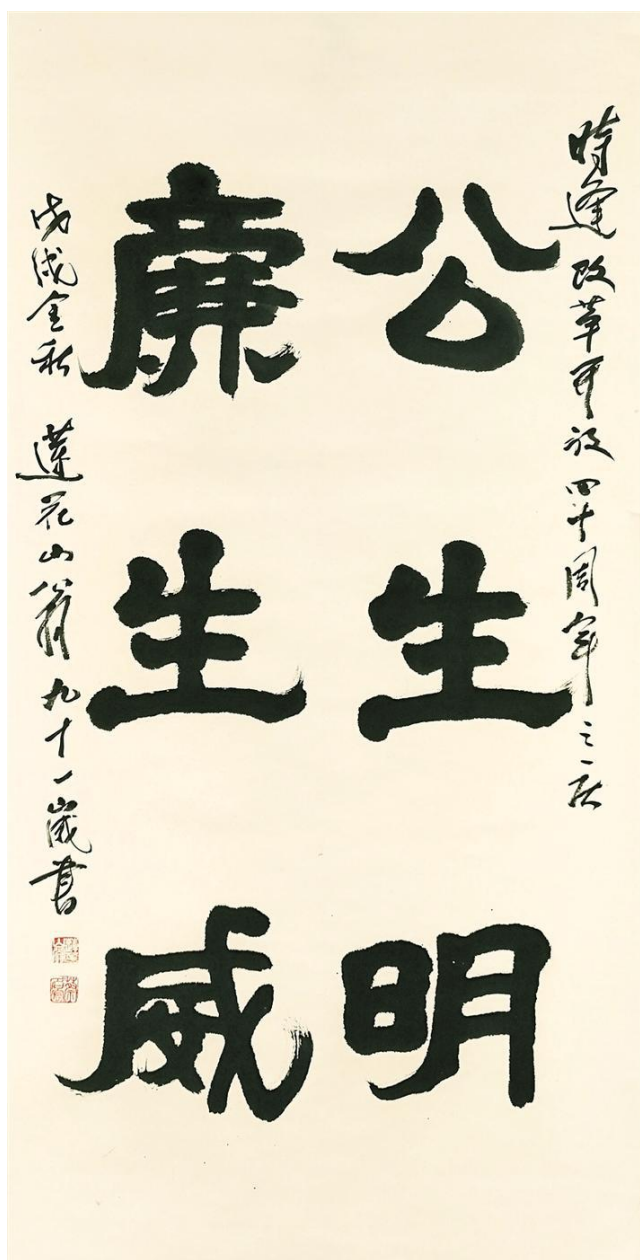 時逢改革開放四十周年之慶
公生明
廉生威
戊戌金秋 蓮花山翁九十一歲書